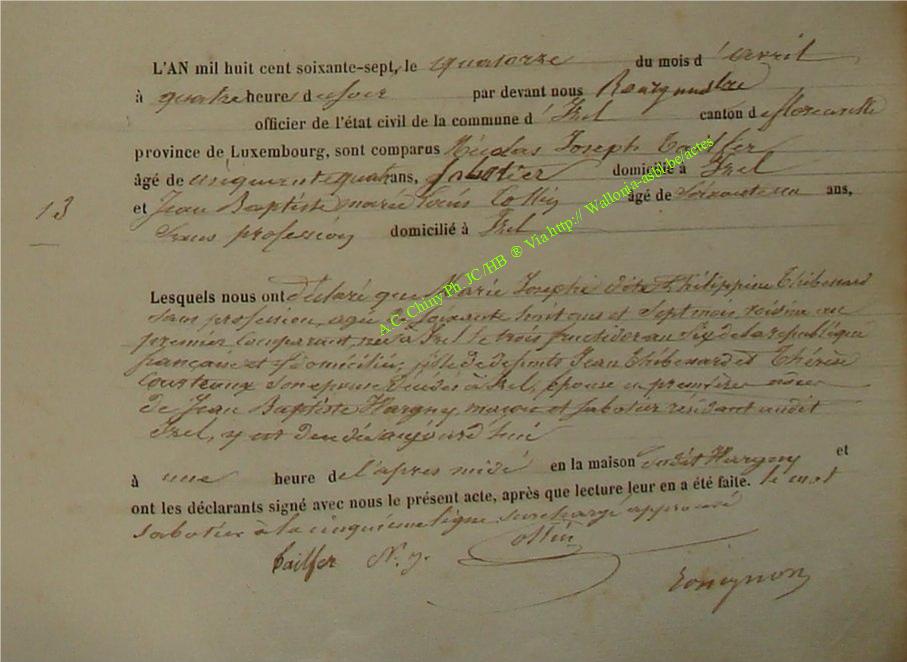 L'AN mil huit cent soixante-sept, le quatorze du mois d'avril
à quatre heures du soir par devant nous Bourgmestre
officier de l'état civil de la commune d'Izel canton de florenville
province de Luxembourg, sont comparus Nicolas Joseph Tailfer
âgé de cinquante quatre ans, sabotier domicilié à Izel
et Jean Baptiste marie Louis Collin âgé de Soixante un ans,
13
Sans profession domicilié à Izel
Lesquels nous ont déclaré que Marie Josephe dite Philippine Thibessard
sans profession, agée de soixante huit ans et sept mois, voisine au
premier comparant, née à Izel le trois fructidor an Six de la république
française et y domiciliée, fille de defunts Jean Thibessard et Thérèse
son epouse decédés à Izel, épouse en premières noces
de Jean Baptiste Hargny, maçon et sabotier résidant audit
Izel, y est décédée aujourd'hui
à une heure de l'apres midi en la maison dudit Hargny et
ont les déclarants signé avec nous le présent acte, après que lecture leur en a été faite. le mot
sabotier à la cinquième ligne surchargé approuvé
Tailfer N. J. Collin
A.C. Chiny Ph. JC /HB ® Via http:// Wallonia-asbl.be/actes